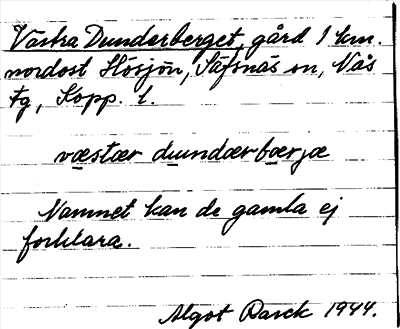 Västra Dunderberget, gård 1 km.
nordost Hösjön, Säfsnäs sn, Nås
tg, Kopp. l.
væstær dundærbærjæ
Namnet kan de gamla ej
förklara.
Algot Rasck 1944.